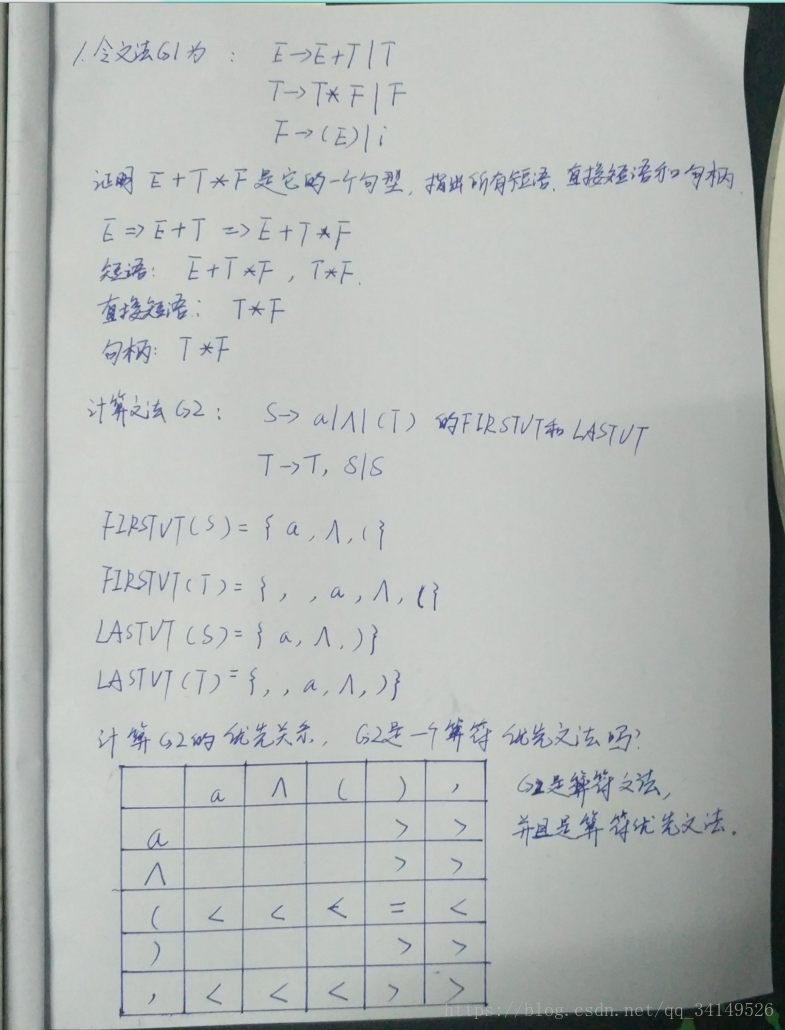 1.令文法G1为： E→E+T|T
T→T*F|F
F→(E)|i
证明 E+T*F是它的一个句型，指出所有短语、直接短语和句柄.
E⇒E+T⇒E+T*F
短语： E+T*F，T*F.
直接短语： T*F
句柄： T*F
计算文法G2： S→a|Λ|(T) 的FIRSTVT和LASTVT
T→T，S|S
FIRSTVT(S)={a,Λ,(}
FIRSTVT(T)={，,a,Λ,(}
LASTVT(S)={a,Λ,)}
LASTVT(T)={，,a,Λ,)}
计算G2的优先关系，G2是一个算符优先文法吗?
a Λ ( ) ,
a > >
Λ > >
( < < < = <
) > >
, < < < > >
G2是算符文法，
并且是算符优先文法.
https://blog.csdn.net/qq_34149526